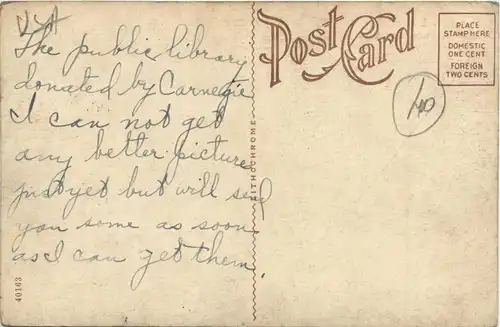 USA
The public library
donated by Carnegie
I can not get
any better pictures
just yet but will send
you some as soon
as I can get them
POST CARD
PLACE
STAMP HERE
DOMESTIC
ONE CENT
FOREIGN
TWO CENTS
40
LITHOCHROME
40163